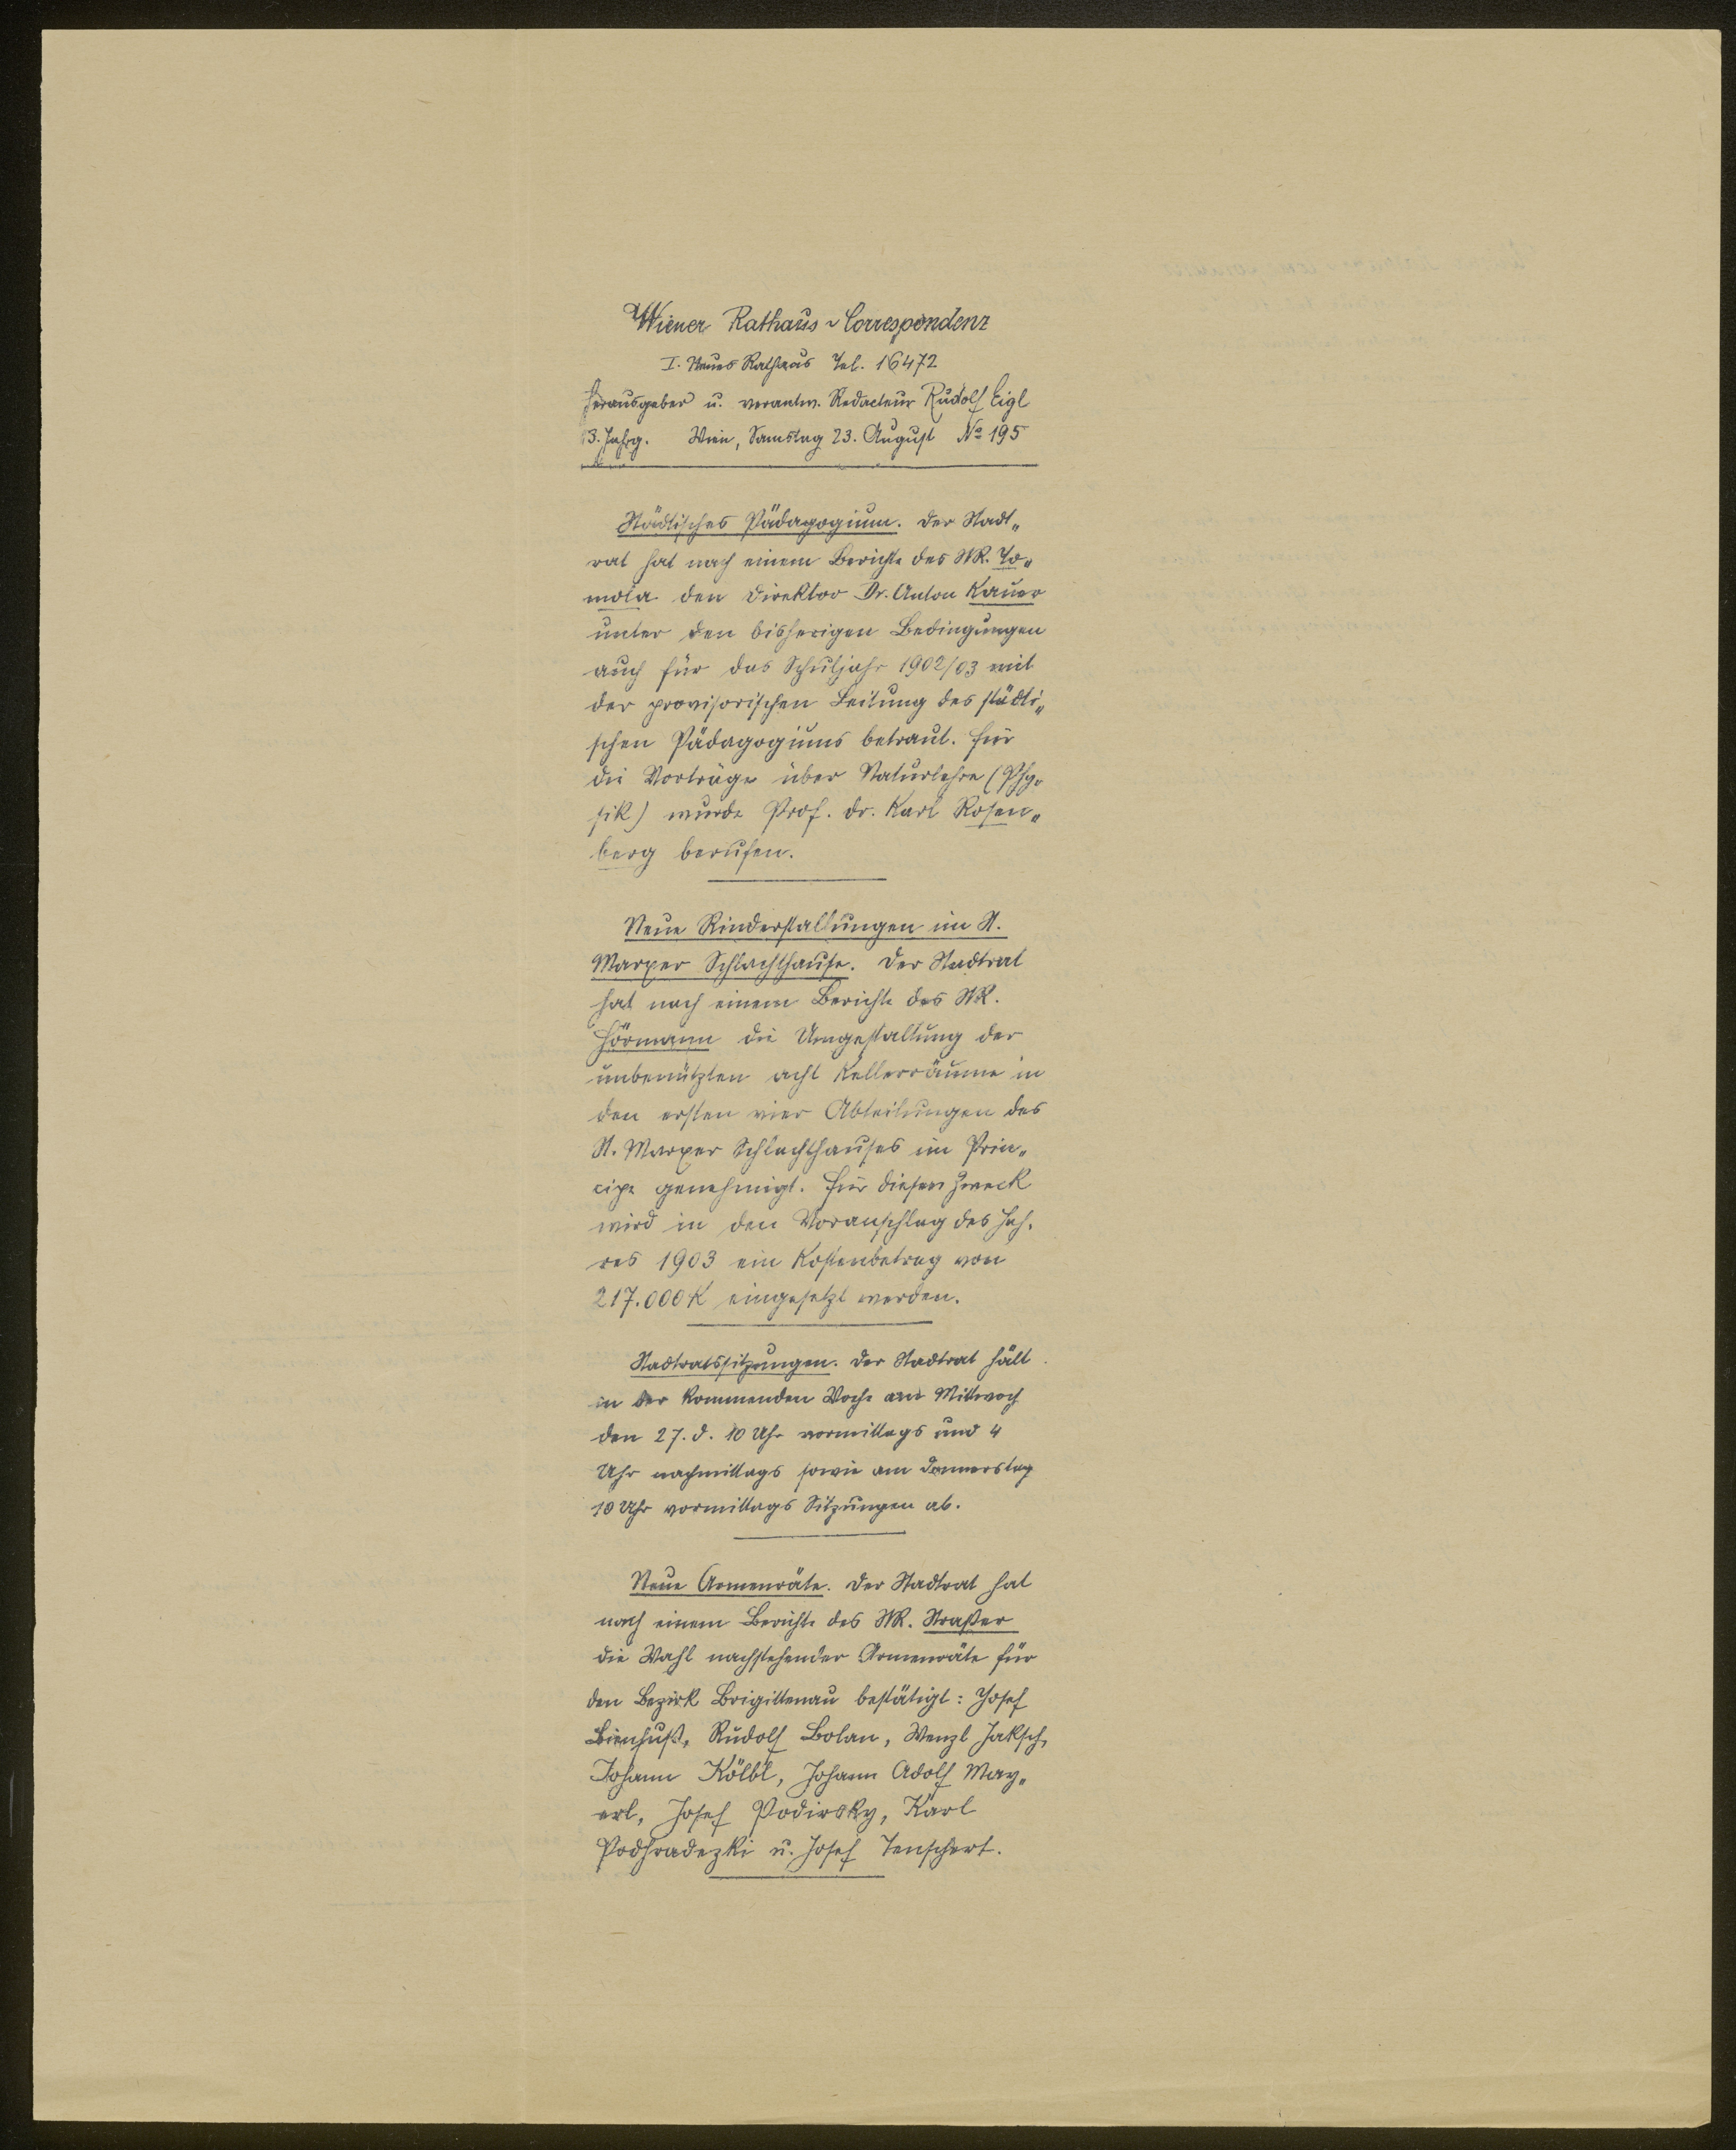 Wiener Rathaus-Correspondenz
I. Neues Rathaus Tel. 16472
Herausgeber u. verantw. Redacteur Rudolf Eigl
3. Jahrg. Wien, Samstag 23. August No 195
Städtisches Pädagogium. Der Stadt„
rat hat nach einem Berichte des StR. To„
mola den Direktor Dr. Anton Kauer
unter den bisherigen Bedingungen
auch für das Schuljahr 1902/03 mit
der provisorischen Leitung des städti„
schen Pädagogiums betraut. Für
die Vorträge über Naturlehre (Phy„
sik) wurde Prof. Dr. Karl Rosen„
berg berufen.
Neue Rinderstallungen im St.
Marxer Schlachthause. Der Stadtrat
hat nach einem Berichte des StR.
Hörmann die Umgestaltung der
unbenützten acht Kellerräume in
den ersten vier Abteilungen des
St. Marxer Schlachthauses im Prin„
cipe genehmigt. Für diesen Zweck
wird in den Voranschlag des Jah„
res 1903 ein Kostenbetrag von
217.000 K eingesetzt werden.
Stadtratssitzungen. Der Stadtrat hält
in der kommenden Woche am Mittwoch
den 27. d. 10 Uhr vormittags und 4
Uhr nachmittags sowie am Donnerstag
10 Uhr vormittags Sitzungen ab.
Neue Armenräte. Der Stadtrat hat
nach einem Berichte des StR. Straßer
die Wahl nachstehender Armenräte für
den Bezirk Brigittenau bestätigt: Josef
Bienhuß, Rudolf Bolan, Wenzl Jaksch,
Johann Kölbl, Johann Adolf May„
erl, Josef Podirsky, Karl
Podhradezki u. Josef Tenschert.